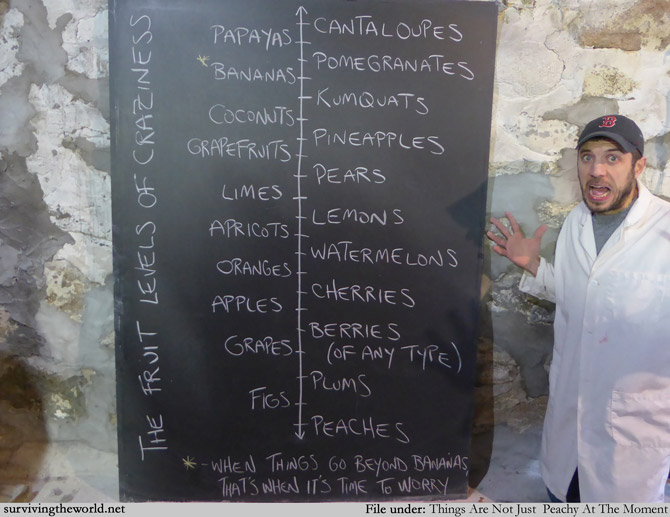 THE FRUIT LEVELS OF CRAZINESS
CANTALOUPES
PAPAYAS
POMEGRANATES
* BANANAS
KUMQUATS
COCONUTS
PINEAPPLES
GRAPEFRUITS
PEARS
LIMES
LEMONS
APRICOTS
WATERMELONS
ORANGES
CHERRIES
APPLES
BERRIES
(OF ANY TYPE)
GRAPES
PLUMS
FIGS
PEACHES
* - WHEN THINGS GO BEYOND BANANAS,
THAT'S WHEN IT'S TIME TO WORRY
B
survivingtheworld.net
File under: Things Are Not Just Peachy At The Moment